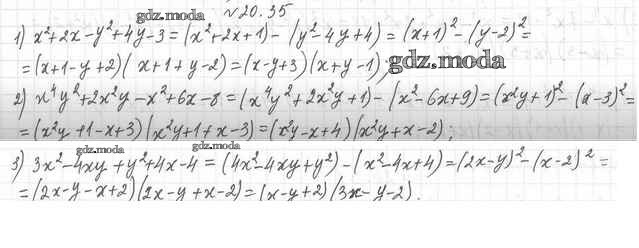 №20.35
gdz.moda
1) x²+2x-y²+4y-3=(x²+2x+1)-(y²-4y+4)=(x+1)²-(y-2)²=
=(x+1-y+2)(x+1+y-2)=(x-y+3)(x+y-1).
gdz.moda
2) x⁴y²+2x²y-x²+6x-8=(x⁴y²+2x²y+1)-(x²-6x+9)=(x²y+1)²-(a-3)²=
=(x²y+1-x+3)(x²y+1+x-3)=(x²y-x+4)(x²y+x-2);
gdz.moda gdz.moda
3) 3x²-4xy+y²+4x-4=(4x²-4xy+y²)-(x²-4x+4)=(2x-y)²-(x-2)²=
=(2x-y-x+2)(2x-y+x-2)=(x-y+2)(3x-y-2).